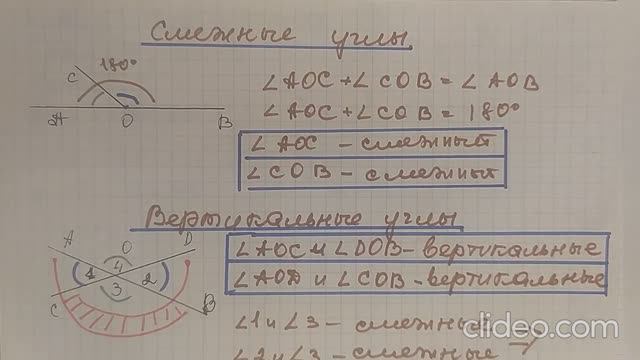 Смежные углы
180°
C
∠AOC + ∠COB = ∠AOB
∠AOC + ∠COB = 180°
A O B
∠AOC - смежный
∠COB - смежный
Вертикальные углы
A O D
∠AOC и ∠DOB - вертикальные
∠AOD и ∠COB - вертикальные
1 4 2
3
C B
∠1 и ∠3 - смежный
∠2 и ∠3 - смежные
clideo.com